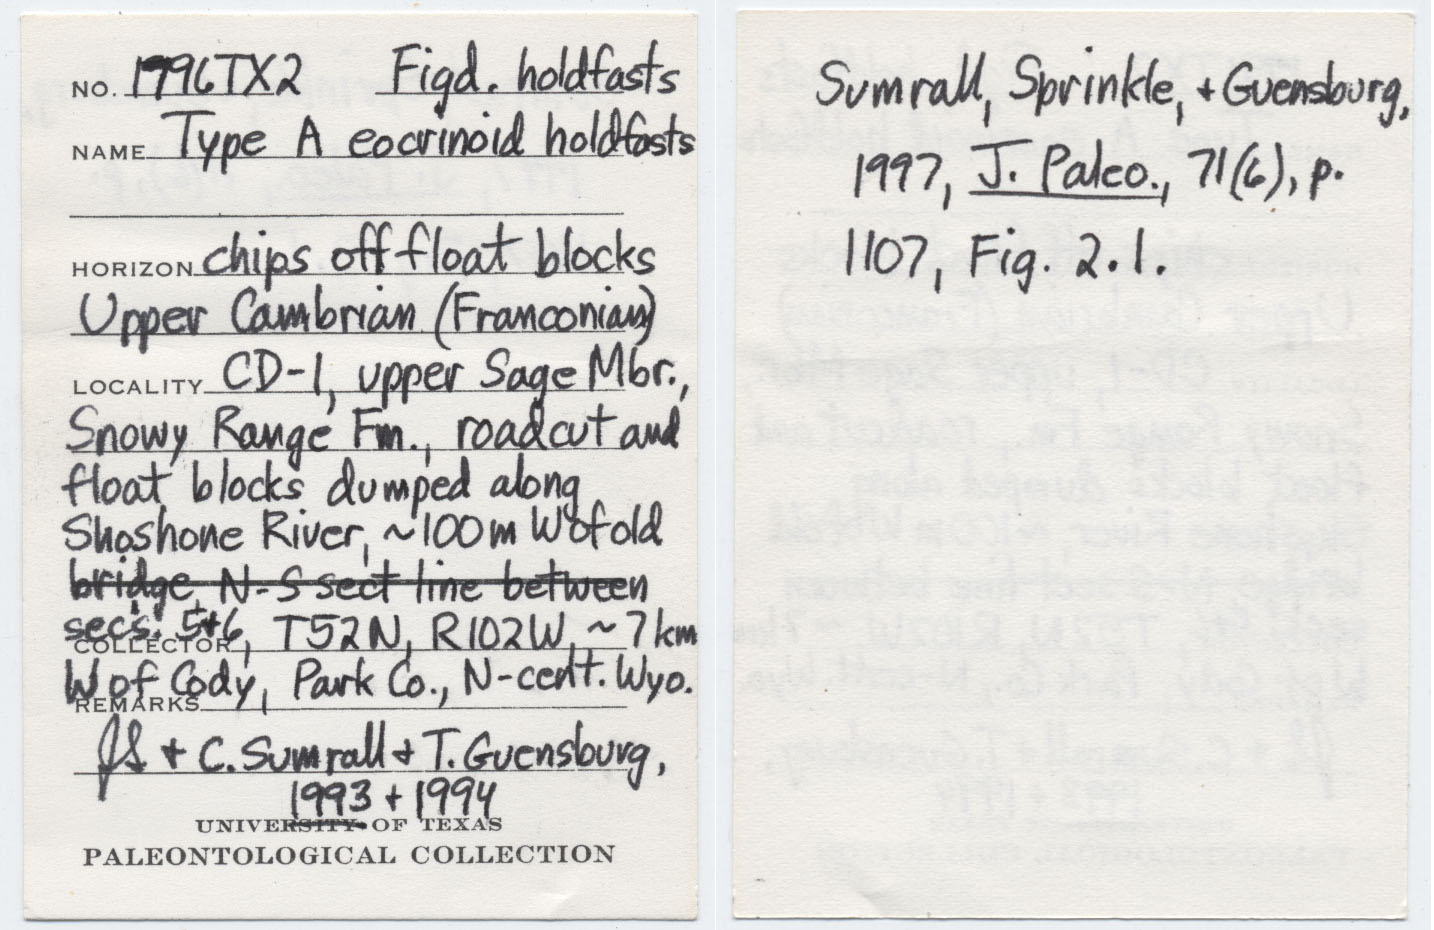 NO. 1996TX2 Figd. holdfasts
NAME Type A eocrinoid holdfasts
HORIZON chips off float blocks
Upper Cambrian (Franconian)
LOCALITY CD-1, upper Sage Mbr.,
Snowy Range Fm., roadcut and
float blocks dumped along
Shoshone River, ~100m W of old
bridge, N-S sect line between
sec's. 5+6, T52N, R102W, ~7km
COLLECTOR
W of Cody, Park Co., N-cent. Wyo.
REMARKS
JS + C. Sumrall + T. Guensburg,
1993 + 1994
UNIVERSITY OF TEXAS
PALEONTOLOGICAL COLLECTION
Sumrall, Sprinkle, + Guensburg,
1997, J. Paleo., 71(6), p.
1107, Fig. 2.1.